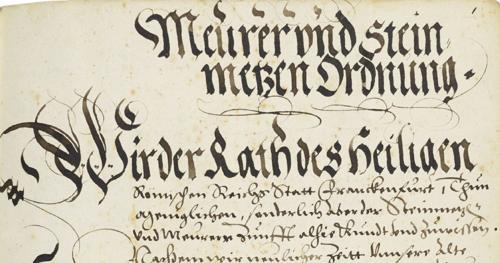 Meurer vnd Stein
metzen Ordnung.
Wir der Rath des Heiligen
Römischen Reichs Statt Franckenfurt, Thun
, sonderlich aber der Steinmetz
vnd Meurer Zunfft alhie kundt vnd zuwissen.
Nachdem wir neulicher Zeitt Vnsere Alte